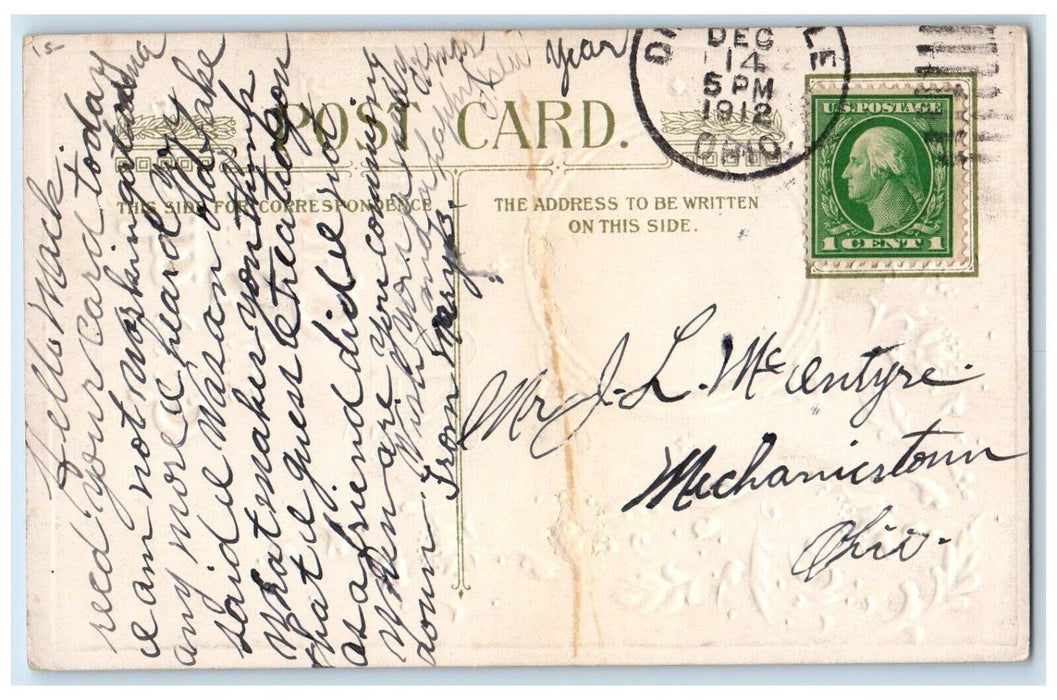 POST CARD.
THIS SIDE FOR CORRESPONDENCE
THE ADDRESS TO BE WRITTEN
ON THIS SIDE.
DEC
14
5 PM
1912
OHIO
U.S. POSTAGE
1 CENT 1
Mr J. L. McEntyre.
Mechanicstown
Ohio.
Hello Mack.
recd your card today
I am not working at
any more I heard you
said I was an old fake
What makes you think
that I guess I treat you
as a friend did I not
When are you comming
down. Wish you a
and a happy New Year
From Mary B.